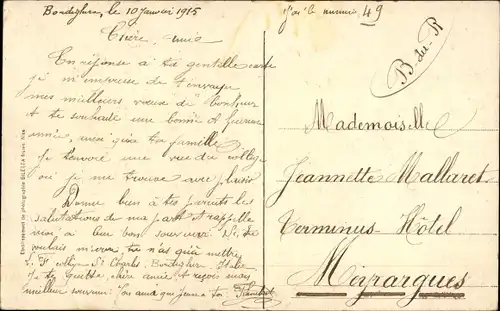 Bordighera, le 10 Janvier 1915
Chère amie
En réponse à ta gentille carte
je m'empresse de t'envoyer
mes meilleurs vœux de bonheur
et te souhaite une bonne et heureuse
année, ainsi qu'à ta famille
Je t'envoie une vue du collège
où je me trouve avec plaisir
Donne bien à tes parents les
salutations de ma part et rappelle
moi à leur bon souvenir. Si tu
voulais m'écrire, tu n'as qu'à mettre
collège St Charles, Bordighera, Italie
Je te quitte chère amie et reçois mon
meilleur souvenir. Ton amie que pense à toi
Etablissement de photographie GILETTA frères, Nice
J'ai le numéro 49
B-du-R
Mademoiselle
Jeannette Mallaret
Terminus-Hôtel
Meyrargues